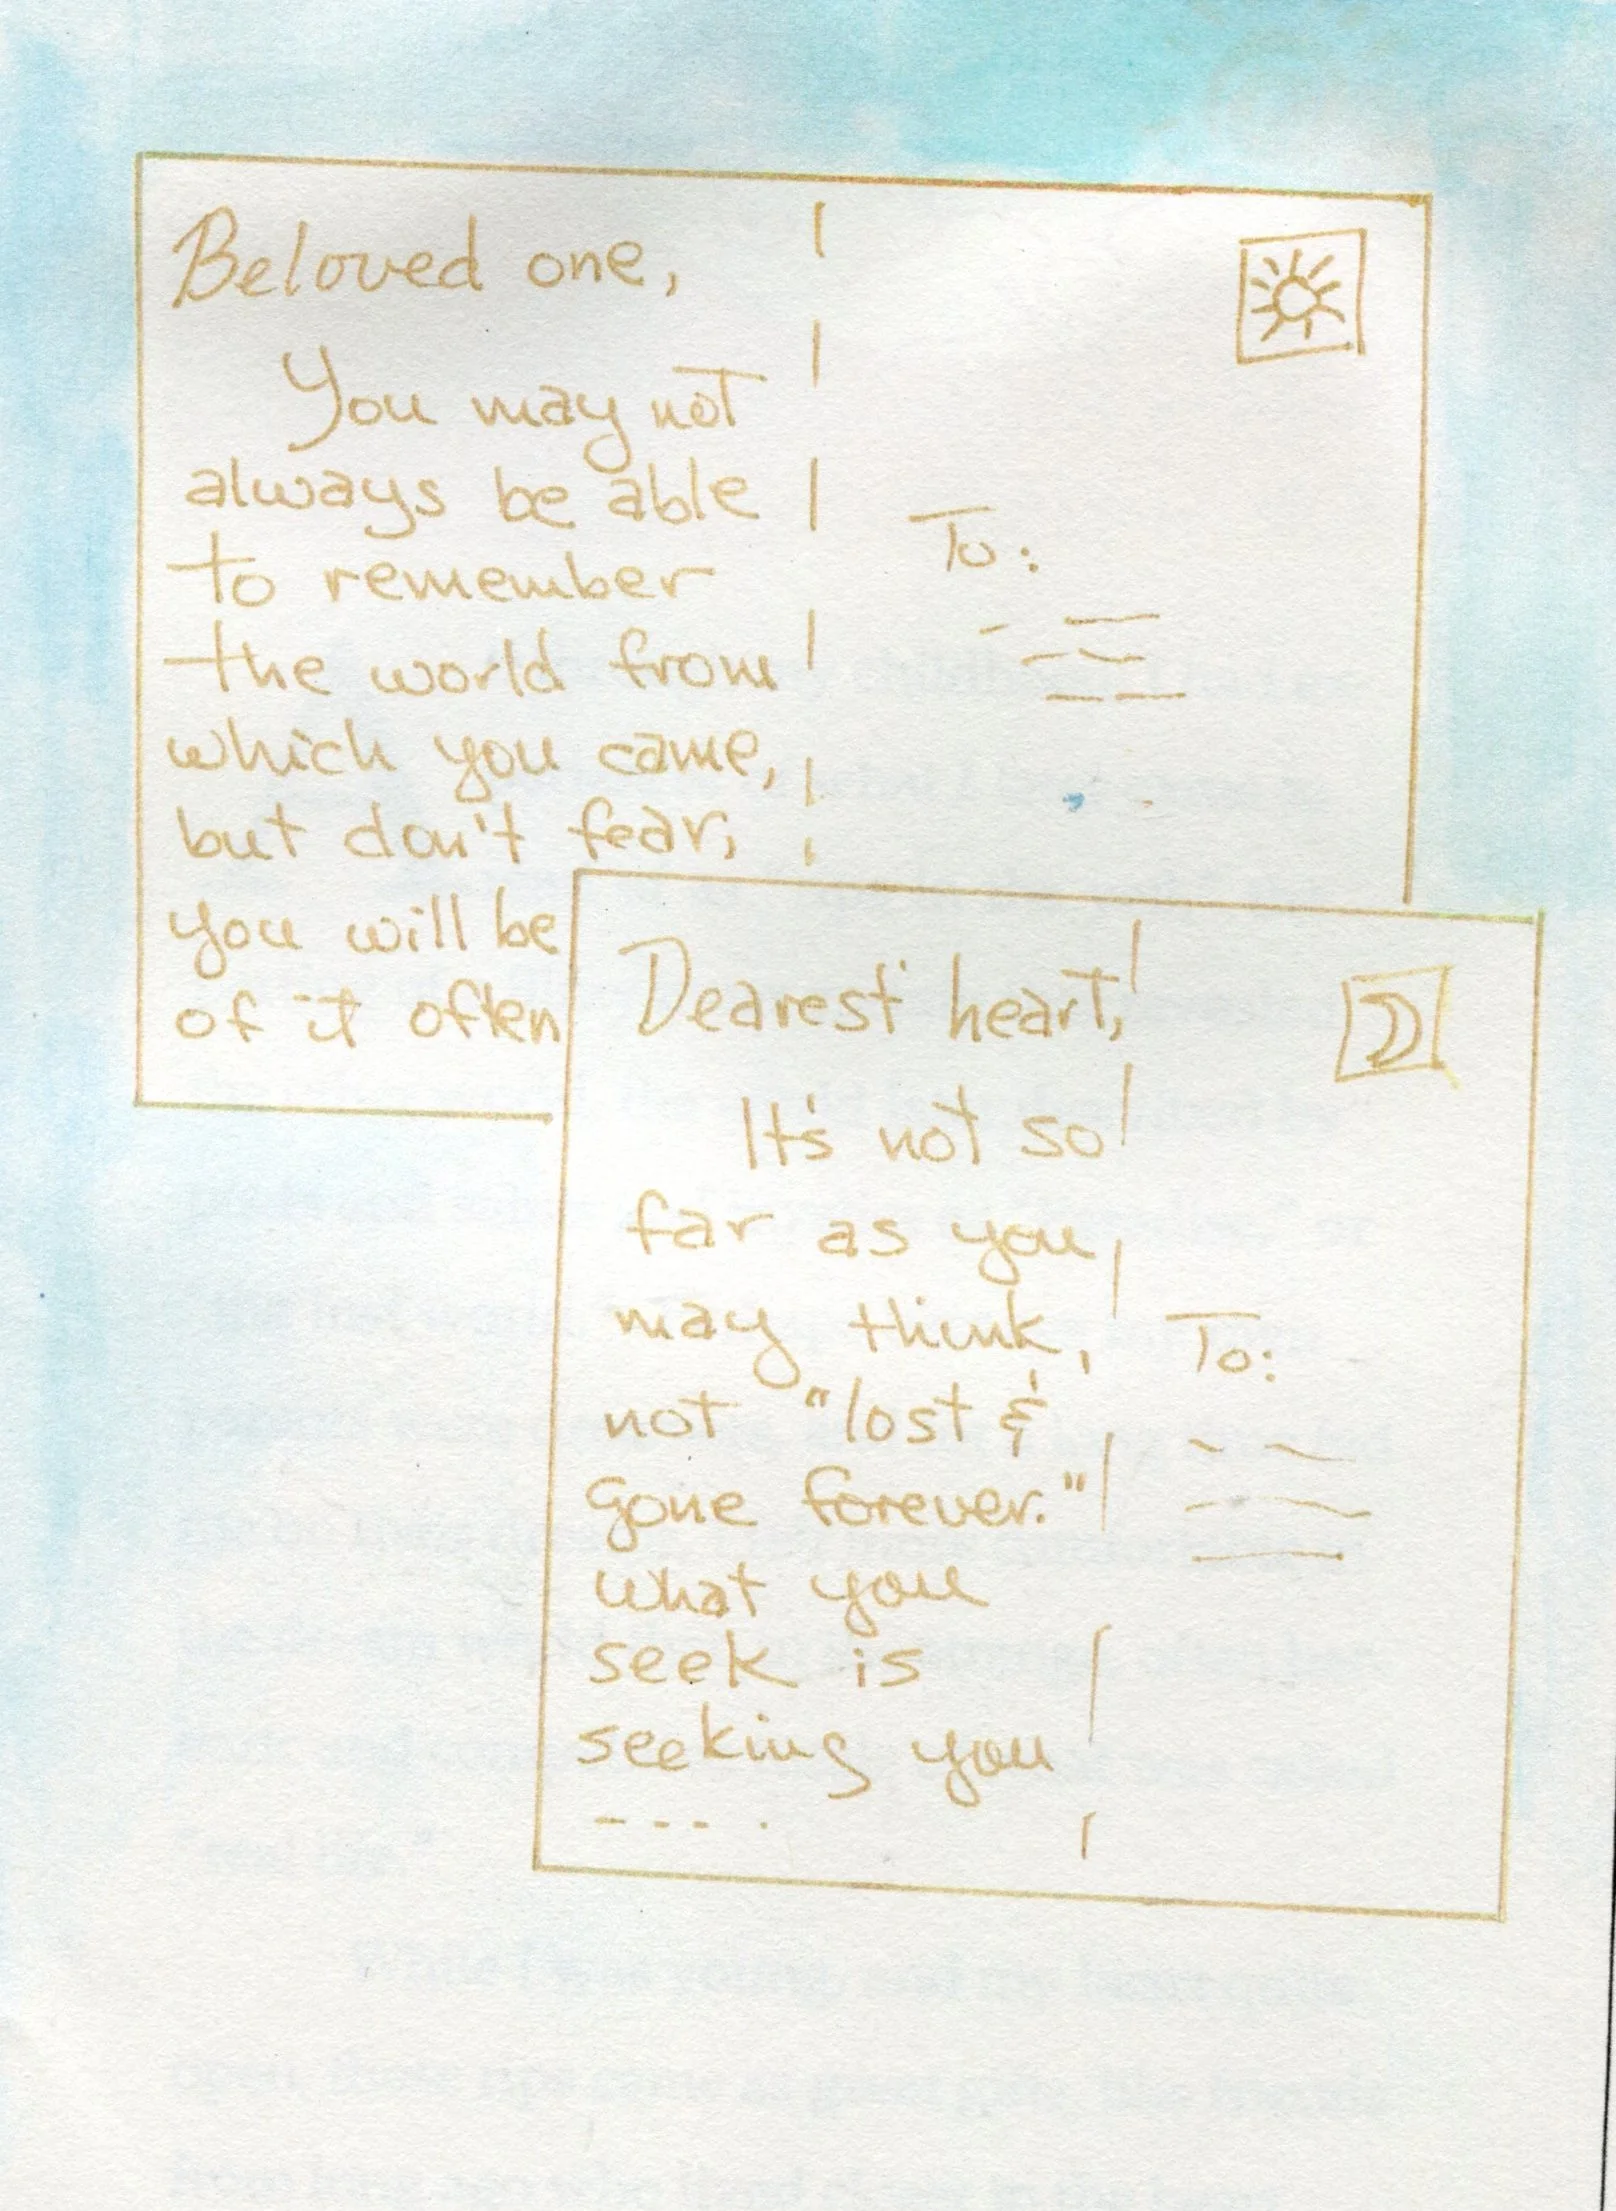 Beloved one,
You may not
always be able
to remember
the world from
which you came,
but don't fear,
you will be
of it often
To:
Dearest heart,
It's not so
far as you
may think,
not "lost &
gone forever."
What you
seek is
seeking you
----.
To: